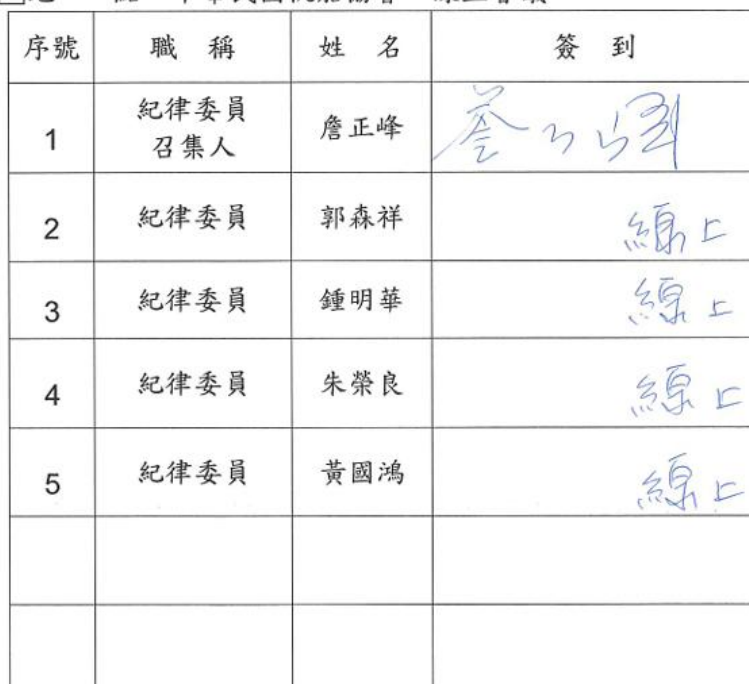 序號 職稱 姓名 簽到
1 紀律委員 召集人 詹正峰
2 紀律委員 郭森祥 線上
3 紀律委員 鍾明華 線上
4 紀律委員 朱榮良 線上
5 紀律委員 黃國鴻 線上